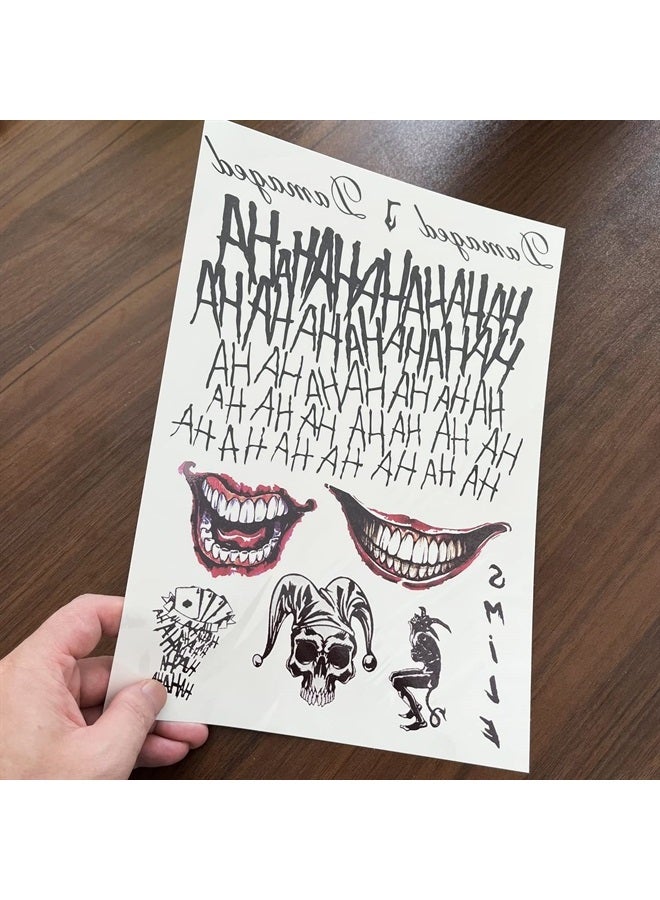 Damaged J Damaged
AH AH AH AH AH AH AH
AH AH AH AH AH AH AH
AH AH AH AH AH AH AH
AH AH AH AH AH AH AH
AH AH AH AH AH AH AH
SMILE
AHAHAH